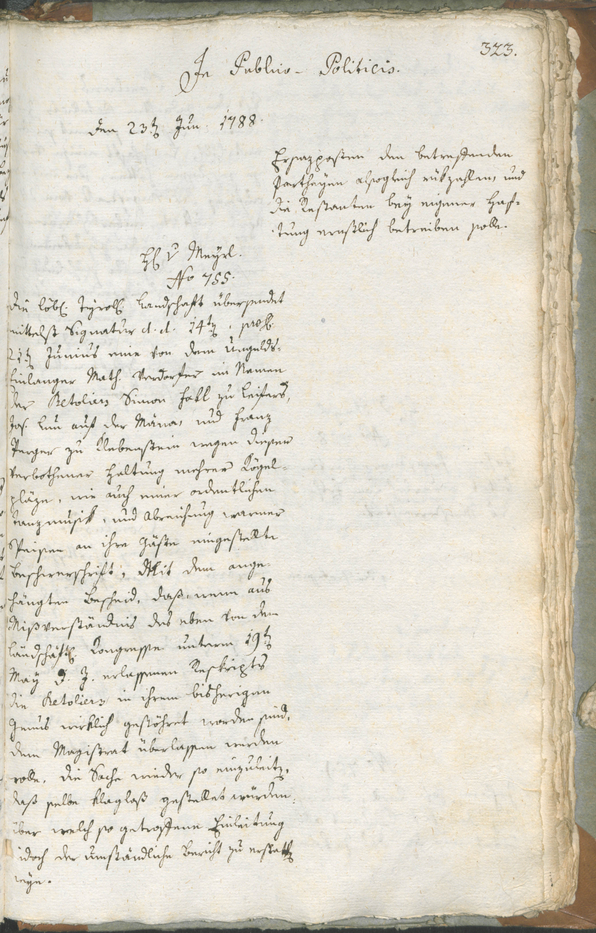 323.
In Publico-Politicis.
Den 23t Jun: 1788.
Ersazposten den betrefenden
Partheyen alsogleich rükzahlen, und
die Restanten bey eigener Haf-
tung ernstlich betreiben solle.
H: v Meyrl.
No 755.
Die löbl. Tyroll. Landschaft übersendet
mittelst Signatur d. d. 14t, praes.
21t Junius eine von dem Umgelds-
Einlanger Math. Verdorfer im Namen
der Simon Hall zu Leifers,
Jos. Lun auf der Mäna, und Franz
Perger zu Rebenstein wegen diesen
verbothener Haltung mehrer Kögel-
pläze, wie auch einer ordentlichen
Tanzmusik, und Abreichung warmer
Speisen an ihre Gäste eingestellte
Beschwerschrift; Mit dem ange-
hängten Bescheid, daß, wenn aus
Mißverständnis des eben von dem
landschäftl. Kongresse unterm 19t
May d. J. erlassenen Reskripts
die in ihrem bisherigen
Genus wirklich gestöhret worden sind,
dem Magistrat überlassen werden
wolle, die Sache wieder so einzuleitn,
daß selbe klaglos gestellet würden.
über welch so getroffene Einleitung
jedoch der umständliche Bericht zu erstattn
seye.